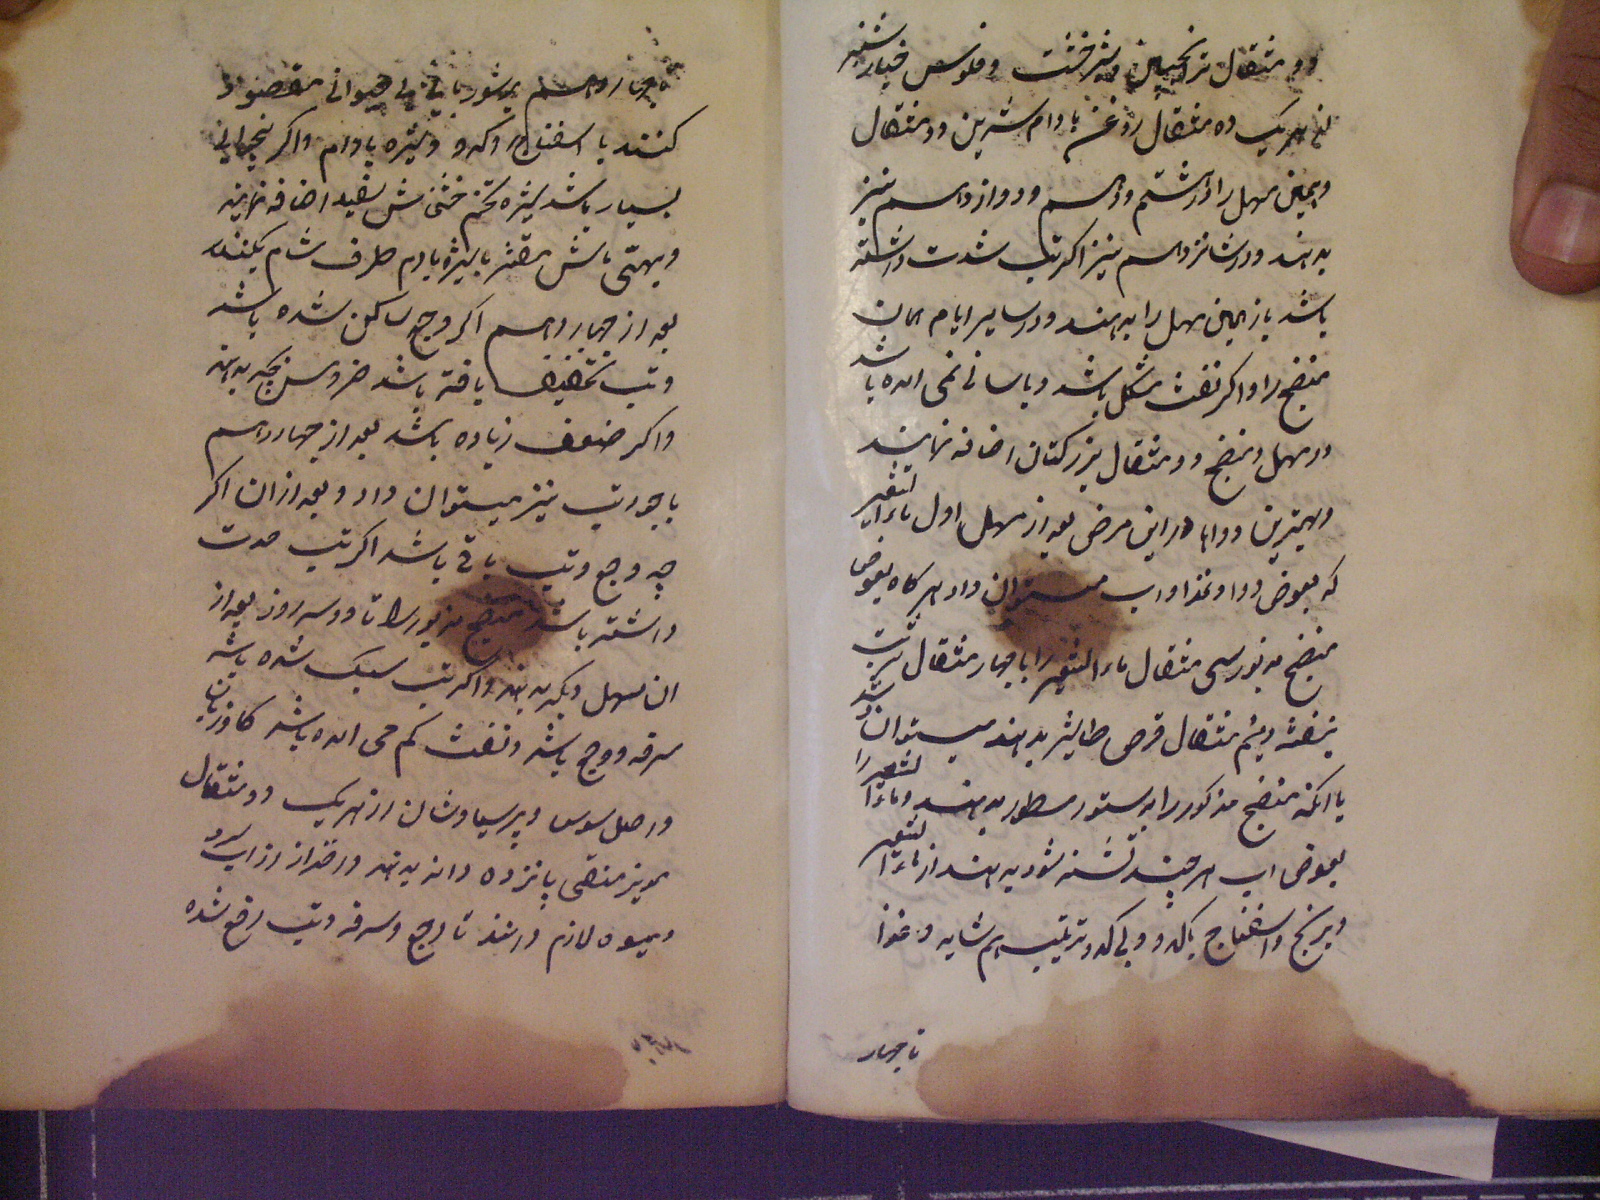 دو مثقال ترنجبین و شیرخشت و فلوس خیار شنبر
از هریک ده مثقال روغن بادام شیرین دو مثقال
و همین مسهل را در هشتم و دهم و دوازدهم نیز
بدهند و در شانزدهم نیز اگر تب شدت داشته
باشد باز همین مسهل را بدهند و در سایر ایام همان
منضج را و اگر نفث مشکل باشد و باسانی نمی امده باشد
در مسهل و منضج دو مثقال بزرکتان اضافه نمایند
و بهترین دواها در این مرض بعد از مسهل اول ماء الشعیر
که بعوض دوا و غذا و اب میتوان داد هرکاه بعوض
منضج مزبور سی مثقال ماء الشعیر را با چهار مثقال شربت
بنفشه و نیم مثقال قرص طباشیر بدهند میتوان شد
یا انکه منضج مذکور را بدستور مسطور بدهند و ماء الشعیر را
بعوض اب هر چند تشنه شود بدهند از ماء الشعیر
و برنج و اسفناج با کدو و بی کدو ترتیب هم شاید و غذا
تا چهار
تا چهاردهم بشوربای بی حیوانی مقصور
کنند با اسفناج و کدو و شیره بادام و اگر بیخوابی
بسیار باشد شیره تخم خشخاش سفید اضافه نمایند
و بهتی ماش مقشر با شیره بادام طرف شام بکنند
بعد از چهاردهم اگر وجع ساکن شده باشد
و تب تخفیف یافته باشد خروس بچه بدهند
و اگر ضعف زیاده باشد بعد از چهاردهم
با وجود تب نیز میتوان داد و بعد از ان اگر
چه وجع و تب باقی باشد اگر تب حدت
داشته باشد منضج مزبور را تا دو سه روز بعد از
ان مسهل دیگر بدهند و اگر تب سبک شده باشد
سرفه و وجع باشد و نفث کم می امده باشد کاوزبان
و اصل سوس و پرسیاوشان از هریک دو مثقال
مویز منقی پانزده دانه بدهند و احتراز از اب سرد
و میوه لازم دانند تا وجع و سرفه و تب رفع شده